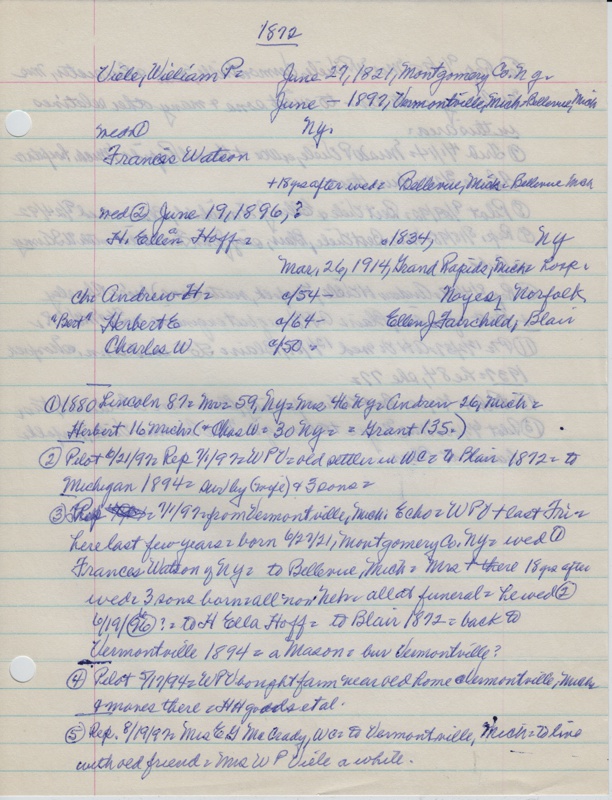 1872
Viele, William P = June 27, 1821, Montgomery Co. N.Y.
June - 1897, Vermontville, Mich = Bellevue, Mich
wed ① NY.
Frances Watson
+ 18 yrs after wed = Bellevue, Mich = Bellevue Mich
wed ② June 19, 1896, ?
H. Ellen Hoff = c1834, NY
Mar, 26, 1914, Grand Rapids, Mich =
ch: Andrew H = c/54 - Noyes, Norfolk
"Bert" Herbert E c/64 - Ellen J Fairchild, Blair
Charles W c/50 =
① 1880 Lincoln 87 = Mr = 59, NY = Mrs 46 NY = Andrew 26, Mich =
Herbert 16 Mich = (+ Chas W = 30 NY = = Grant 135.)
② Pilot 6/21/97 = Rep 7/1/97 = WPV = old settler in WC = to Blair 1872 = to
Michigan 1894 = sur by (wife) & 3 sons =
③ Rep = 7/1/97 = from Vermontville, Mich. Echo = WPV + last Fri =
here last few years = born 6/27/21, Montgomery Co. NY = wed ①
Frances Watson of NY = to Bellevue, Mich = Mrs + there 18 yrs after
wed = 3 sons born = all now Neb = all at funeral = he wed ②
6/19/(96) ? = to H Ella Hoff = to Blair 1872 = back to
Vermontville 1894 = a Mason = bur Vermontville?
④ Pilot 5/17/94 = WPV bought farm near old home Vermontville, Mich
& moves there = HH goods etal.
⑤ Rep. 8/19/97 = Mrs E G McCrady, WC = to Vermontville, Mich = to live
with old friend = Mrs W P Viele a while.